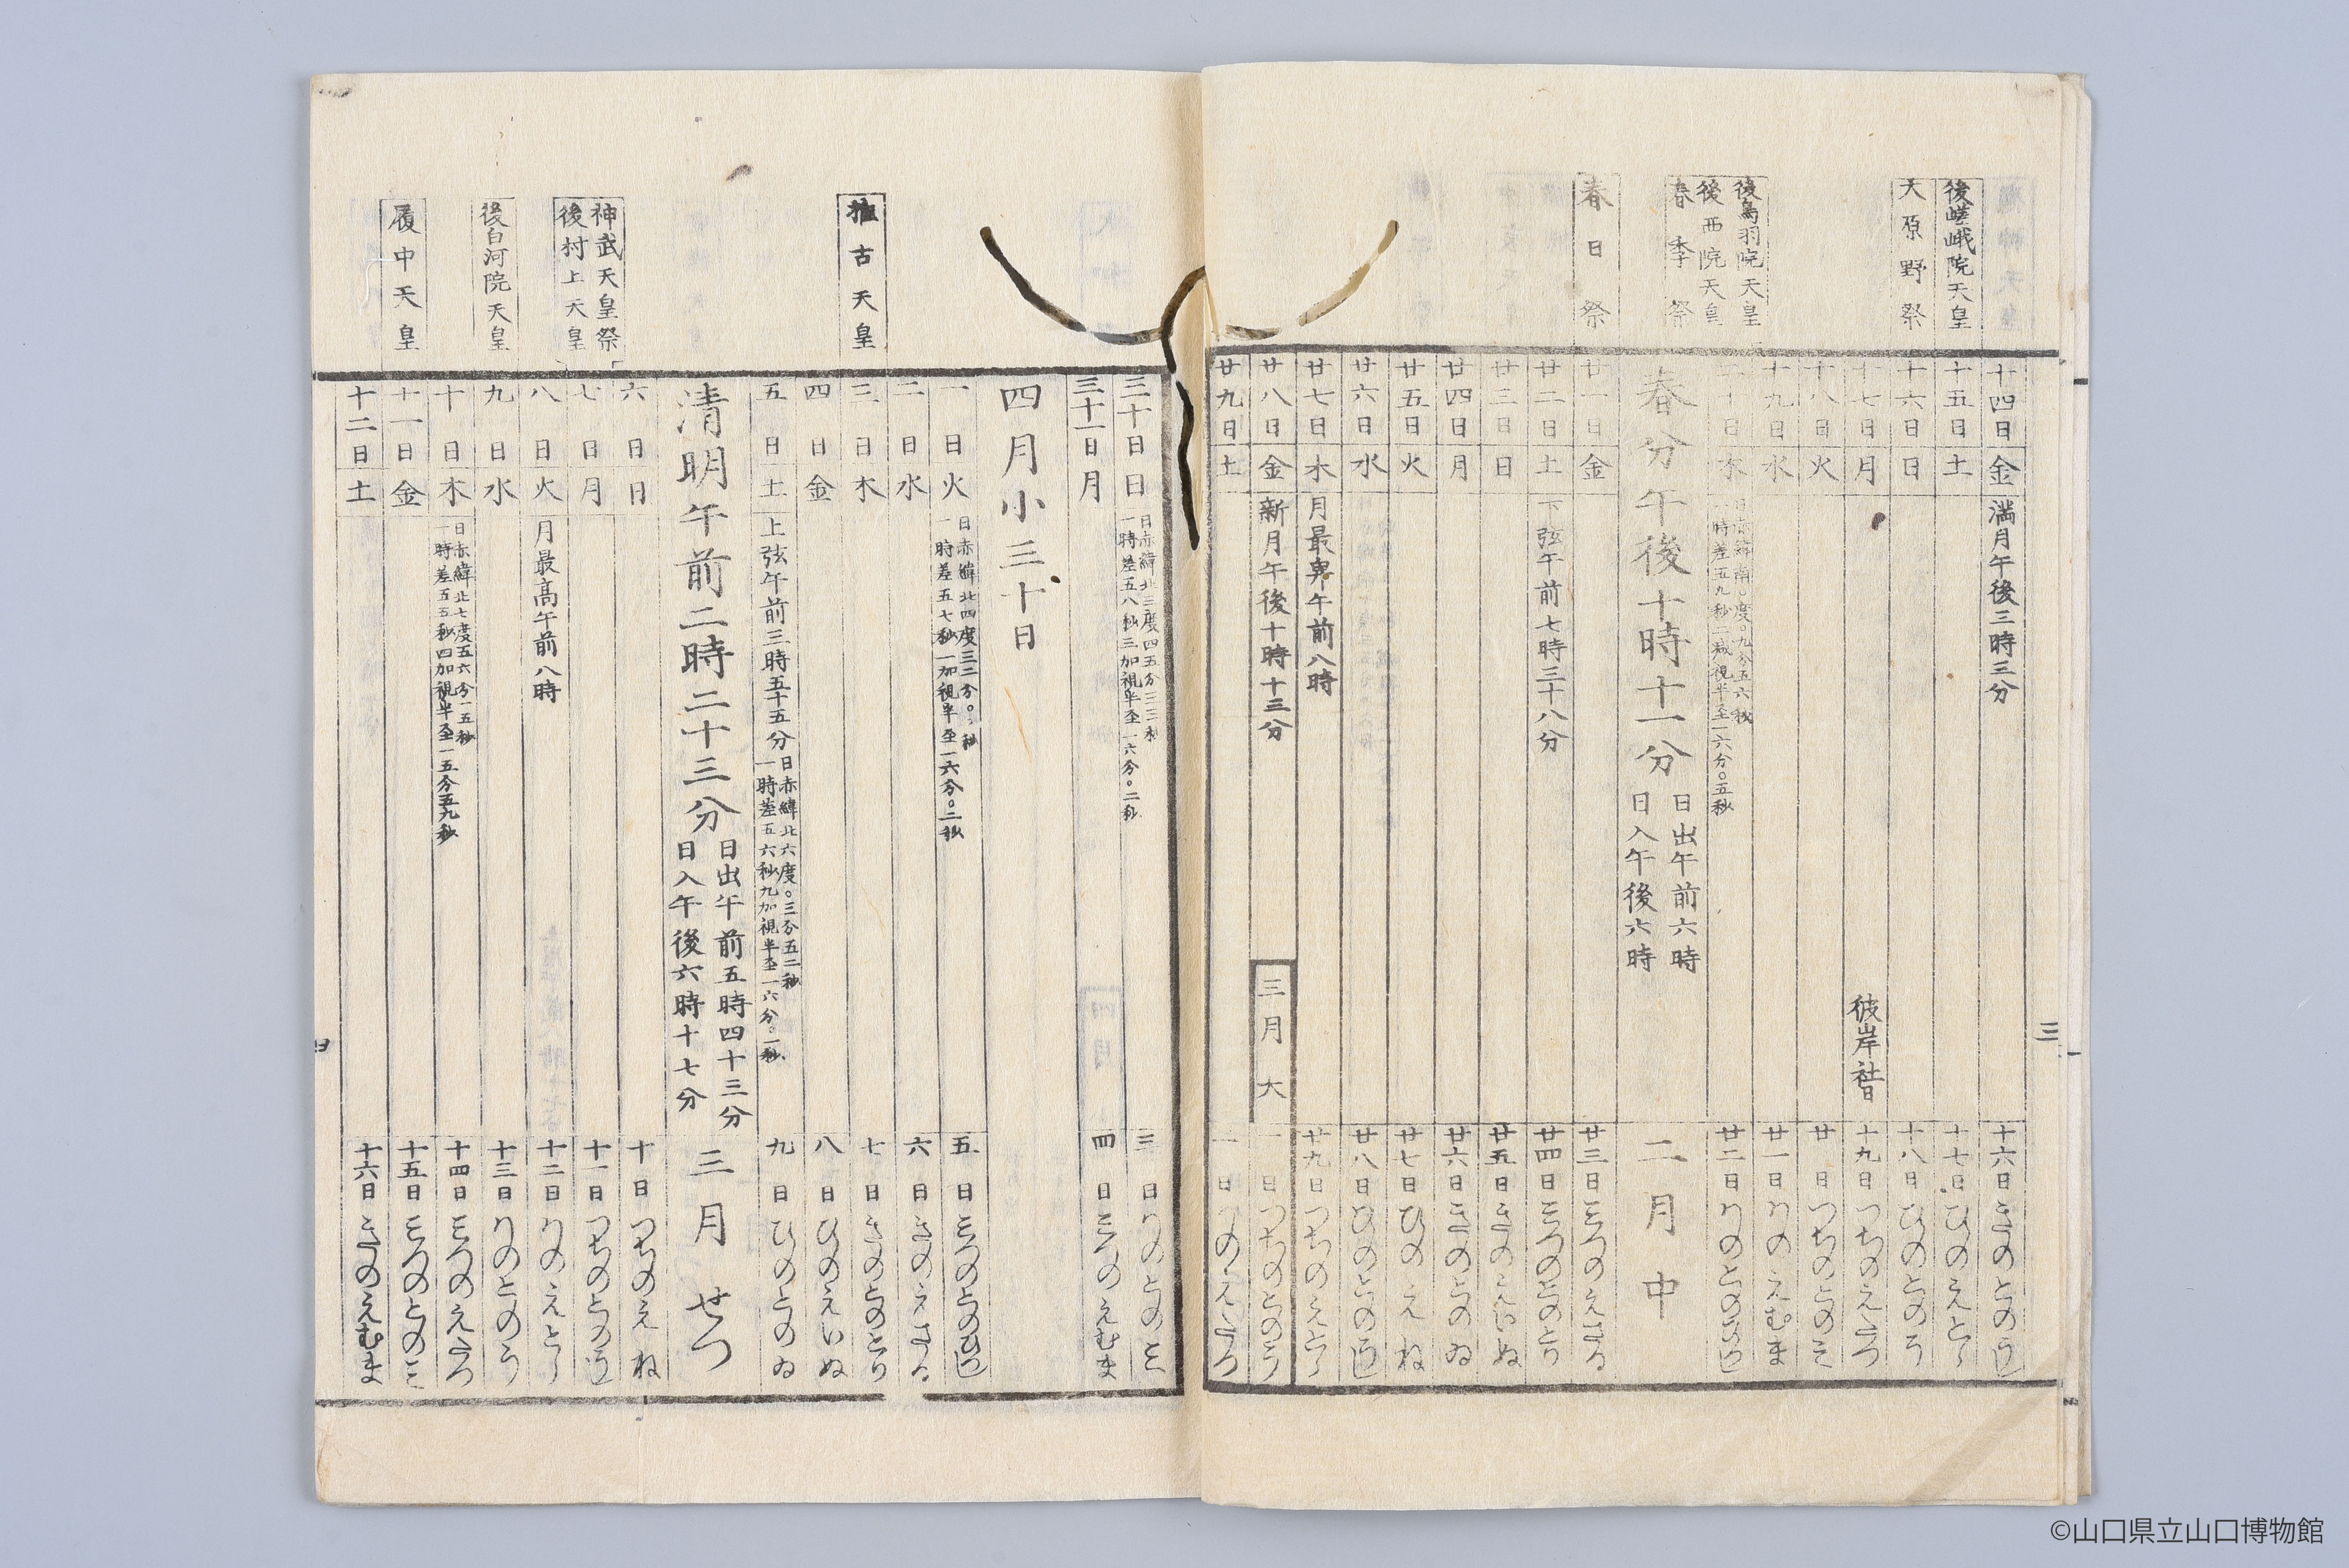 後嵯峨院天皇
大原野祭
後鳥羽院天皇
後西院天皇
春季祭
春日祭
十四日金 満月午後三時三分 十六日きのとのうし
十五日土 十七日ひのえとら
十六日日 十八日ひのとのう
十七日月 彼岸 社日 十九日つちのえたつ
十八日火 廿日つちのとのみ
十九日水 廿一日かのえむま
二十日木 日赤緯南〇度〇九分五六秒 一時差五九秒二減視半至一六分〇五秒 廿二日かのとのひつし
春分午後十時十一分 日出午前六時 日入午後六時 二月中
廿一日金 廿三日みつのえさる
廿二日土 下弦午前七時三十八分 廿四日みつのとのとり
廿三日日 廿五日きのえいぬ
廿四日月 廿六日きのとのゐ
廿五日火 廿七日ひのえね
廿六日水 廿八日ひのとのうし
廿七日木 月最卑午前八時 廿九日つちのえとら
廿八日金 新月午後十時十三分 三月大 一日つちのとのう
廿九日土 二日かのえたつ
三
推古天皇
神武天皇祭
後村上天皇
後白河院天皇
履中天皇
三十日日 日赤緯北三度四五分三三秒 一時差五八秒三加視半至一六分〇二秒 三日かのとのみ
三十一日月 四日みつのえむま
四月小三十日
一日火 日赤緯北四度三二分〇秒 一時差五七秒一加視半至一六分〇二秒 五日みつのとのひつし
二日水 六日きのえさる
三日木 七日きのとのとり
四日金 八日ひのえいぬ
五日土 上弦午前三時五十五分 日赤緯北六度〇三分五二秒 一時差五六秒九加視半至一六分〇一秒 九日ひのとのゐ
清明午前二時二十三分 日出午前五時四十三分 日入午後六時十七分 三月せつ
六日日 十日つちのえね
七日月 十一日つちのとのうし
八日火 月最高午前八時 十二日かのえとら
九日水 十三日かのとのう
十日木 日赤緯北七度五六分一五秒 一時差五五秒四加視半至一五分五九秒 十四日みつのえたつ
十一日金 十五日みつのとのみ
十二日土 十六日きのえむま
©山口県立山口博物館